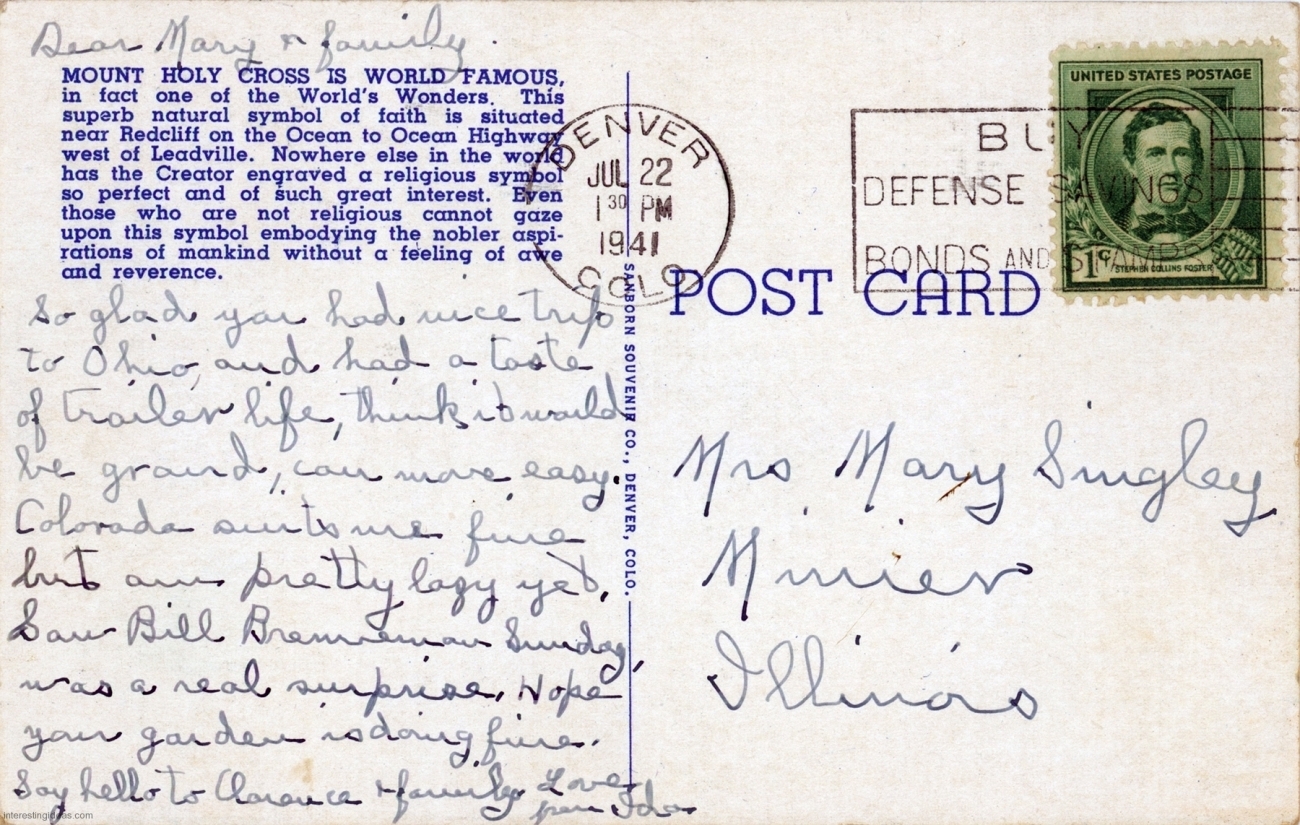 Dear Mary & family.
MOUNT HOLY CROSS IS WORLD FAMOUS,
in fact one of the World's Wonders. This
superb natural symbol of faith is situated
near Redcliff on the Ocean to Ocean Highway
west of Leadville. Nowhere else in the world
has the Creator engraved a religious symbol
so perfect and of such great interest. Even
those who are not religious cannot gaze
upon this symbol embodying the nobler aspi-
rations of mankind without a feeling of awe
and reverence.
So glad you had nice trip
to Ohio, and had a taste
of trailer life, think it would
be grand, can move easy.
Colorado suits me fine
but am pretty lazy yet.
Saw Bill Brenneman Sunday,
was a real surprise. Hope
your garden is doing fine.
Say hello to Clarence & family Love
Ida
SANBORN SOUVENIR CO., DENVER, COLO.
DENVER
JUL 22
1 30 PM
1941
COLO.
BUY
DEFENSE SAVINGS
BONDS AND STAMPS
UNITED STATES POSTAGE
1¢
STEPHEN COLLINS FOSTER
POST CARD
Mrs Mary Singley
Minier
Illinois
interestingideas.com